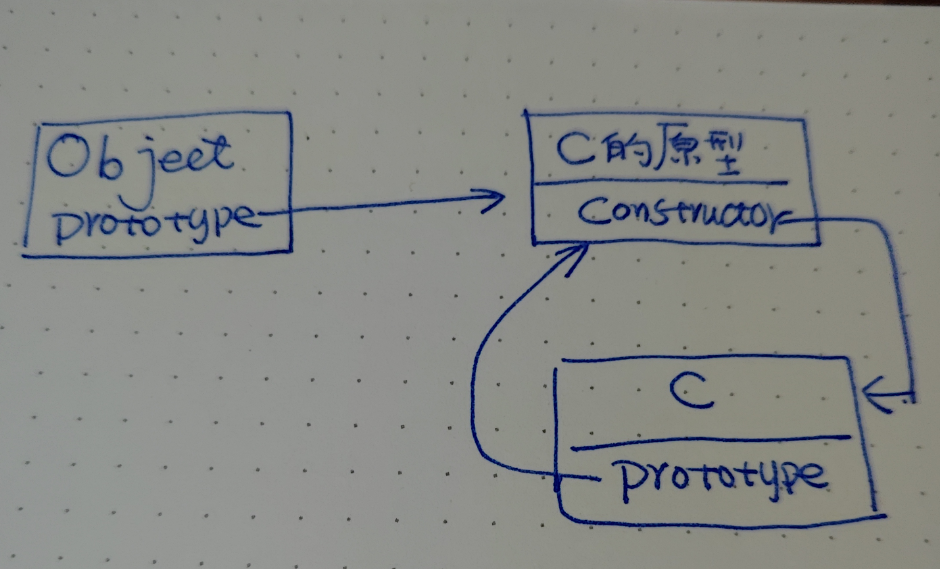 Object
prototype
C的原型
constructor
C
prototype